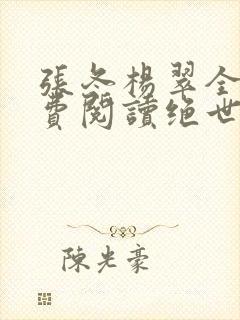 張冬楊翠全
費閱讀绝世
陳光豪